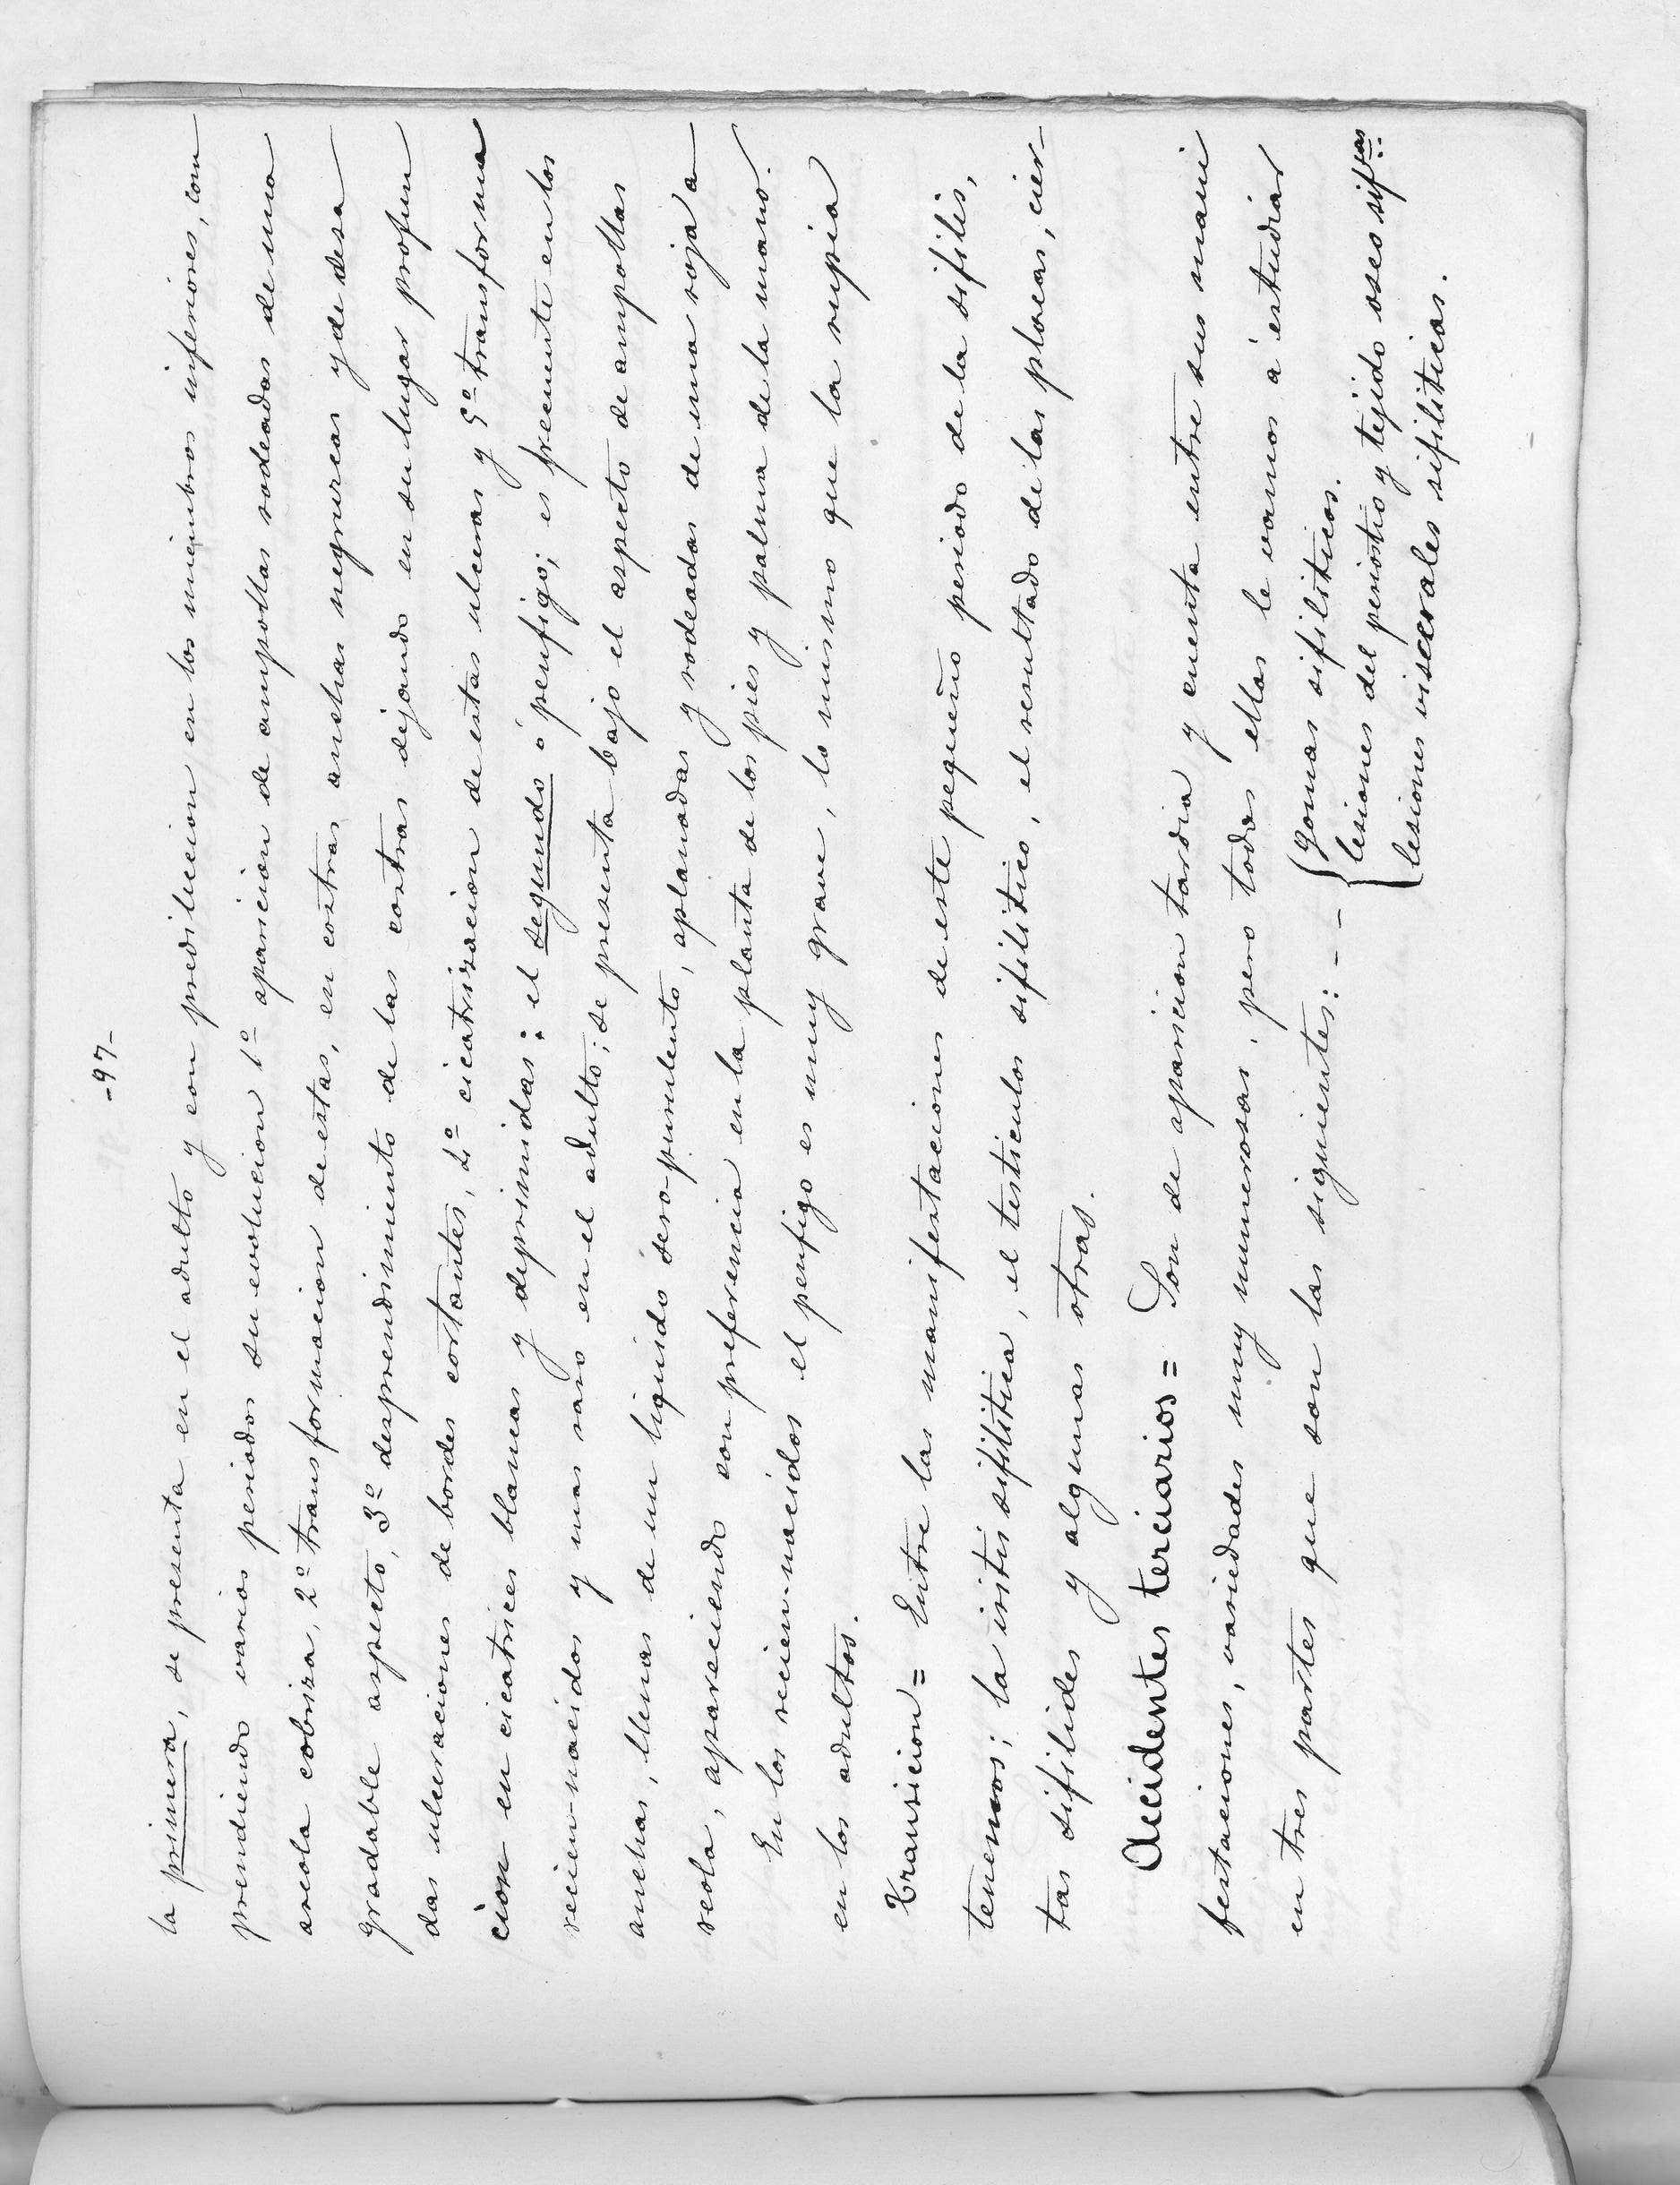 -97-
la primera, se presenta en el adulto y con predileccion en los miembros inferiores, com
prendiendo varios periodos su evolucion 1º aparicion de ampollas rodeadas de una
areola cobriza, 2º transformacion de estas, en costras anchas negruzcas y de desa
gradable aspecto, 3º desprendimiento de las costras dejando en su lugar profun
das ulceraciones de bordes cortantes, 4º cicatrizacion de estas ulceras y 5º transforma
cion en cicatrices blancas y deprimidas: el segundo ó penfigo; es frecuente en los
recien-nacidos y mas raro en el adulto; se presenta bajo el aspecto de ampollas
anchas, llenas de un liquido sero-purulento, aplanadas y rodeadas de una roja a
reola, apareciendo con preferencia en la planta de los pies y palma de la mano.
En los recien-nacidos el penfigo es muy grave, lo mismo que la rupia
en los adultos.
Transicion = Entre las manifestaciones de este pequeño periodo de la sifilis,
tenemos; la iritis sifilitica, el testiculos sifilitico, el resultado de las placas, cier-
tas sifilides y algunas otras.
Accidentes terciarios = Son de aparicion tardia y cuenta entre sus mani
festaciones, variedades muy numerosas, pero todas ellas le vamos á estudiar
en tres partes que son las siguientes: - - { Gomas sifiliticos.
lesiones del periostio y tejido oseo sifcas:
lesiones viscerales sifiliticas.